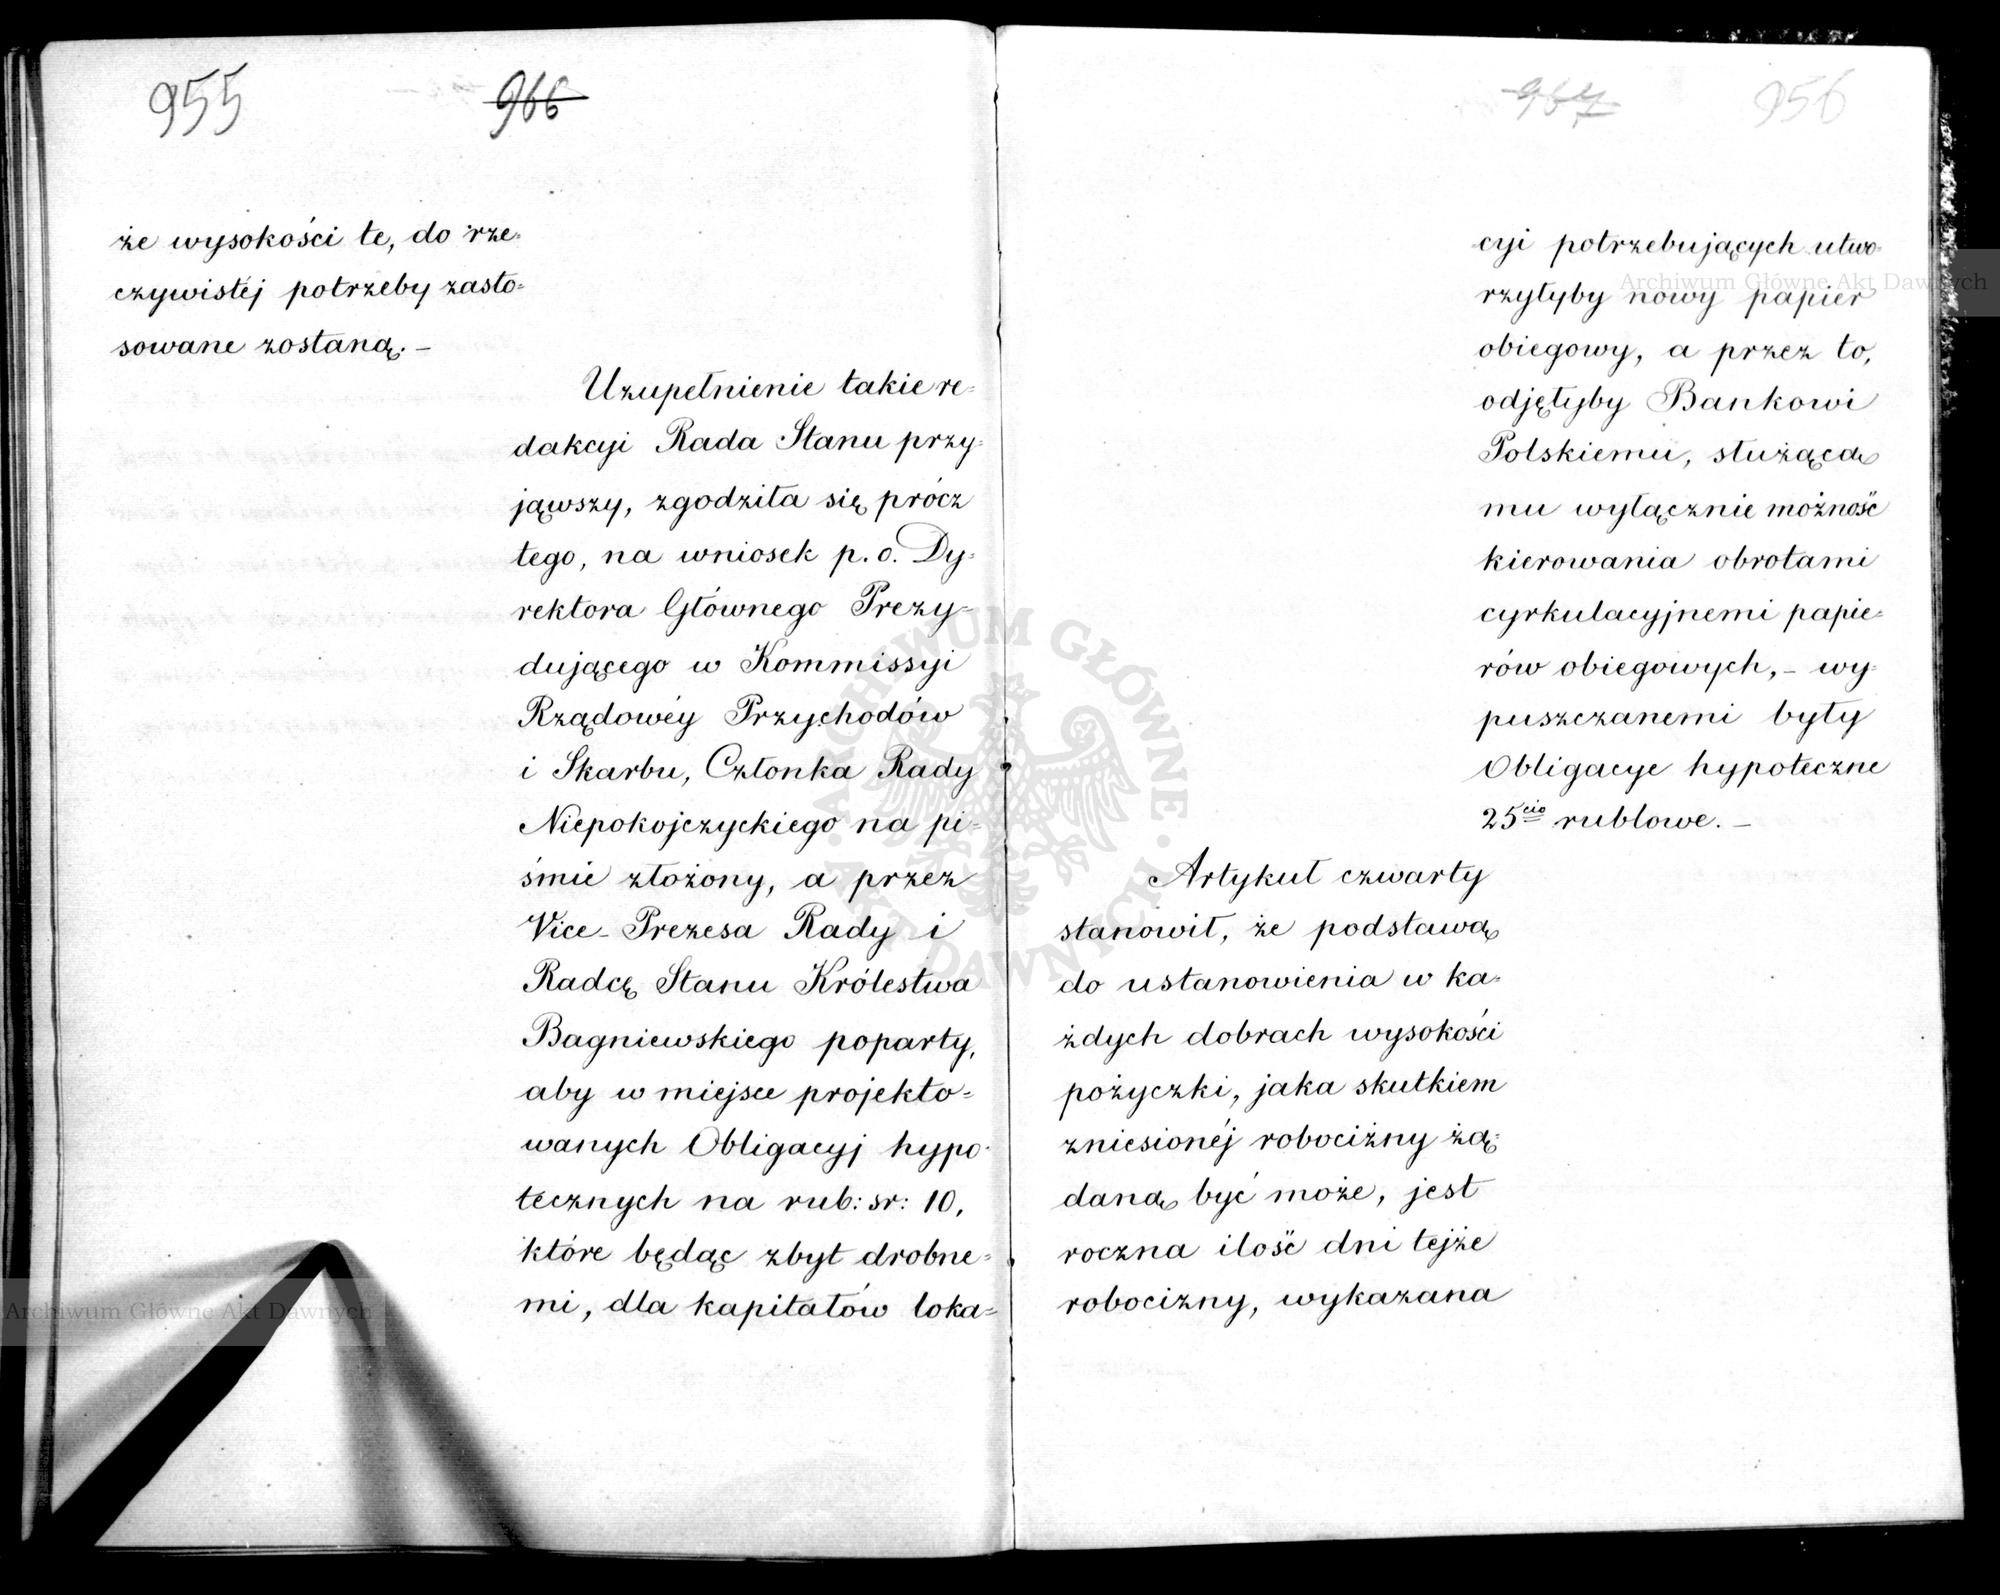 955 966
że wysokości te, do rze-
czywistéj potrzeby zasto-
sowane zostaną. –
Uzupełnienie takie re-
dakcyi Rada Stanu przy-
jąwszy, zgodziła się prócz
tego, na wniosek p. o. Dy-
rektora Głównego Prezy-
dującego w Kommissyi
Rządowéy Przychodów
i Skarbu, Członka Rady
Niepokojczyckiego na pi-
śmie złożony, a przez
Vice-Prezesa Rady i
Radcę Stanu Królestwa
Bagniewskiego poparty,
aby w miejsce projekto-
wanych Obligacyj hypo-
tecznych na rub: sr: 10,
które będąc zbyt drobne-
mi, dla kapitałów loka-
967 956
cyi potrzebujących utwo-
rzyłyby nowy papier
obiegowy, a przez to,
odjęłyby Bankowi
Polskiemu, służącą
mu wyłącznie możność
kierowania obrotami
cyrkulacyjnemi papie-
rów obiegowych, – wy-
puszczanemi były
Obligacye hypoteczne
25cio rublowe. –
Artykuł czwarty
stanowił, że podstawą
do ustanowienia w ka-
żdych dobrach wysokości
pożyczki, jaka skutkiem
zniesionéj robocizny żą-
daną być może, jest
roczna ilość dni tejże
robocizny, wykazana
Archiwum Główne Akt Dawnych
Archiwum Główne Akt Dawnych
· ARCHIWUM GŁÓWNE · AKT DAWNYCH ·